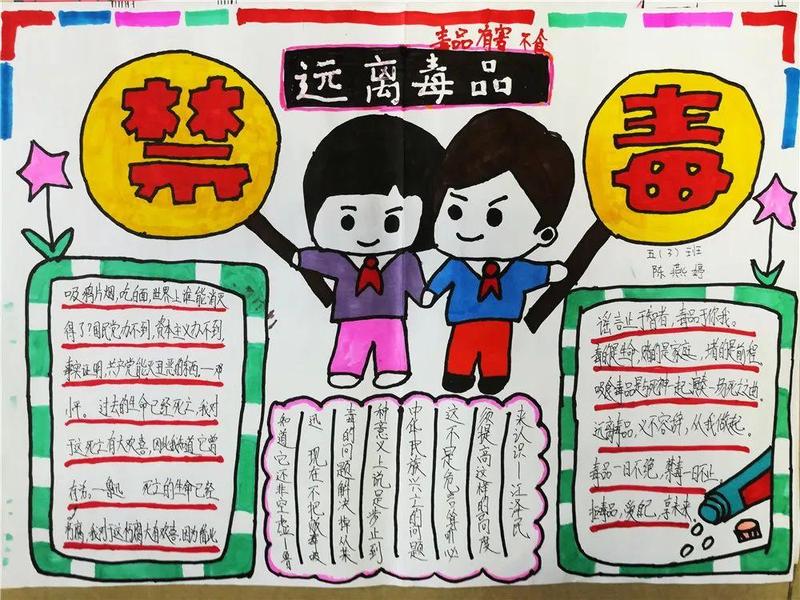 毒品有害 不食
远离毒品
禁
毒
五(3)班
陈燕婷
吸鸦片烟,吃白面,世界上谁能消灭
得了?国民党办不到,资本主义办不到,
事实证明,共产党能消灭丑恶的东西—邓
小平。 过去的生命已经死亡,我对
于这死亡有大欢喜,因此我知道它曾
存活。—鲁迅 死亡的生命已经
朽腐,我对于这朽腐有大欢喜,因为借此
来认识——江泽民
须提高这样的高度
这不是危言耸听必
中华民族兴亡的问题
种意义上说是涉止到
毒的问题解决掉从某
迅 现在不把贩毒吸
知道它还非空虚—鲁
谣言止于智者,毒品于你我。
毒的是生命,赌的是家庭,堵的是前程。
吸食毒品是与死神一起演奏一场死亡之曲。
远离毒品,义不容辞,从我做起。
毒品一日不绝,禁毒一日不止。
拒毒品,爱自己,享未来。